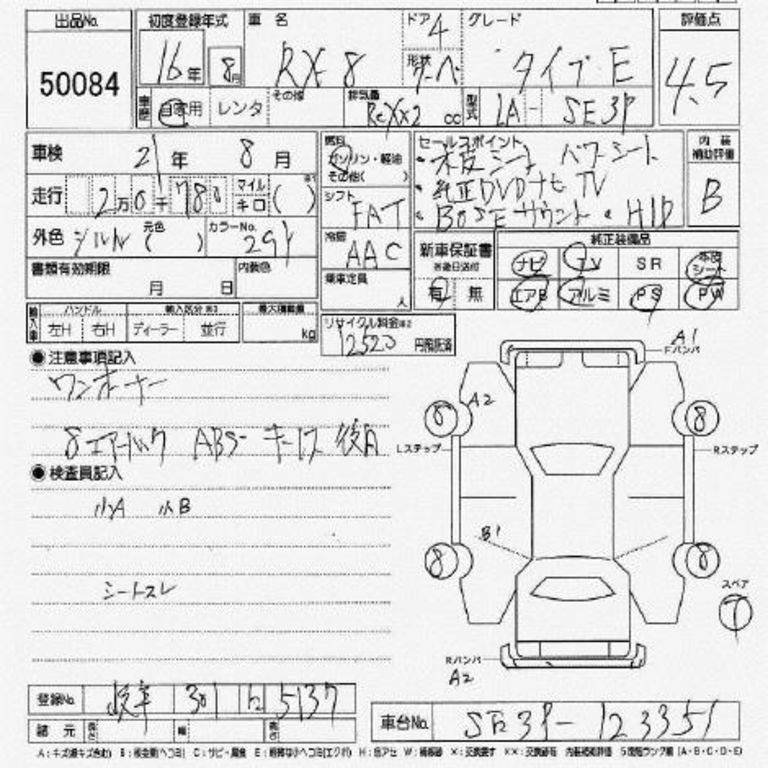 出品No. 50084
初度登録年式 16年 8月
車名 RX-8
ドア 4
形状
グレード タイプ E
評価点 4.5
車歴 自家用 レンタ その他
排気量 cc
型式 LA- SE3P
車検 21年 8月
走行 2万0千780 マイル キロ ( )
外色 シルバ 元色 ( ) カラーNo.
書類有効期限 月 日 内装色
燃料 ガソリン・軽油 その他( )
シフト FAT
冷房 AAC
乗車定員 人
セールスポイント
・本皮シート パワーシート
・純正DVDナビ TV
・BOSEサウンド ・HID
内装補助評価 B
新車保証書 ※後日送付 有 無
純正装備品
ナビ TV SR 本皮シート
エアB アルミ PS PW
輸入車 ハンドル 左H 右H
輸入区分 ※3 ディーラー 並行
最大積載量 kg
リサイクル料金※2 12520 円預託済
●注意事項記入
ワンオーナー
8エアバック ABS キーレス 後A
●検査員記入
小A 小B
シートスレ
A1
Fバンパ
A2
8 8
Lステップ Rステップ
B1
8 8
スペア
T
Rバンパ
A2
登録No. 岐阜 301 5137
諸元 長さ 幅 高さ
車台No. SE3P-123351